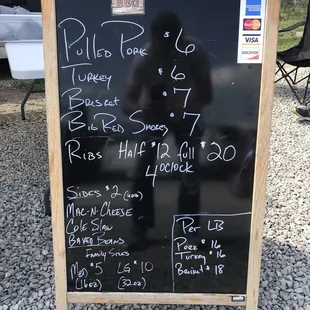 BBQ
VISA
DISCOVER
Pulled Pork $6
Turkey $6
Brisket $7
Big Red Smokes $7
Ribs Half $12 full $20
4 o'clock
Sides $2 (4oz)
Mac-N-Cheese
Cole Slaw
Baked Beans
Family Sides
Med $5 LG $10
(16oz) (32oz)
Per LB
Pork $16
Turkey $16
Brisket $18